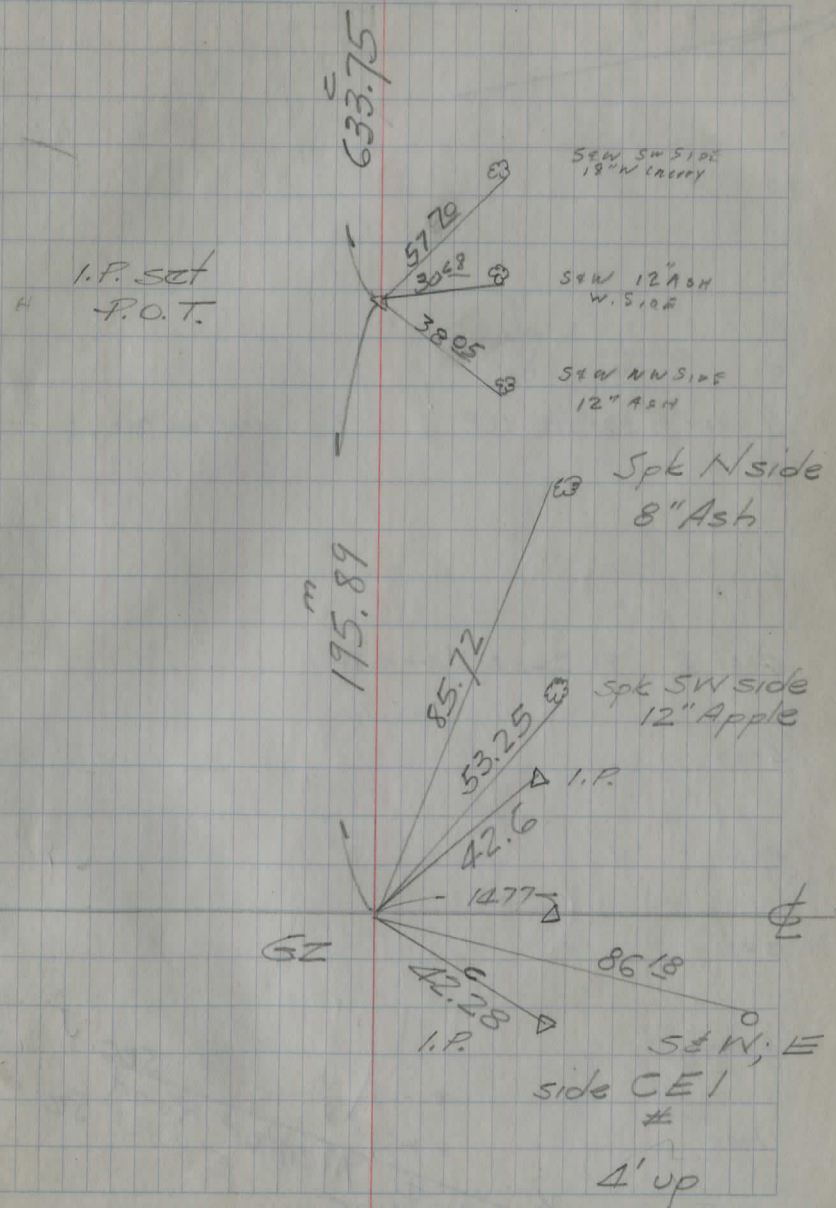 c
633.75
S&W SW SIDE
18" W CHERRY
57 70
30 68
S&W 12" ASH
W. SIDE
I.P. set
P.O.T.
38 05
S&W NW SIDE
12" ASH
Spk N side
8" Ash
m
195.89
85.72
Spk SW side
12" Apple
53.25
I.P.
42.6
14.77
℄
GZ
86 18
42.28
6
I.P.
S&W; E
side CEI
#
4' up